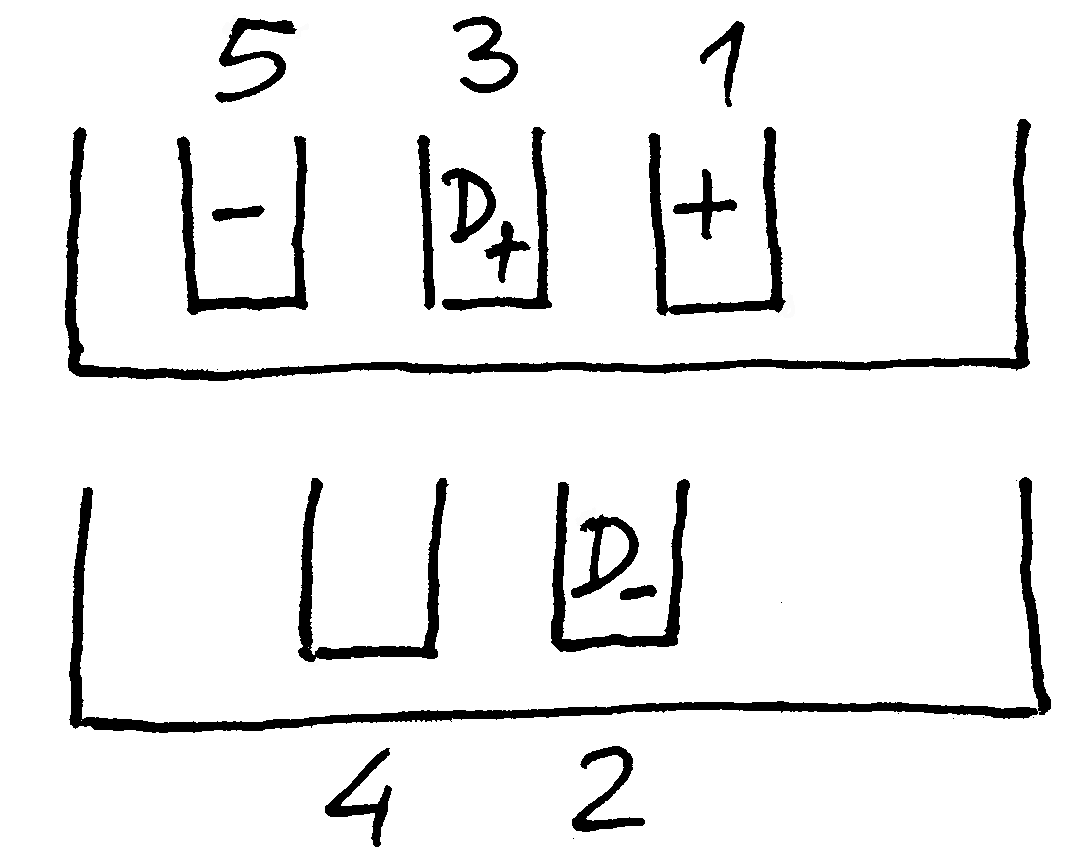 5 3 1
- D+ +
D-
4 2